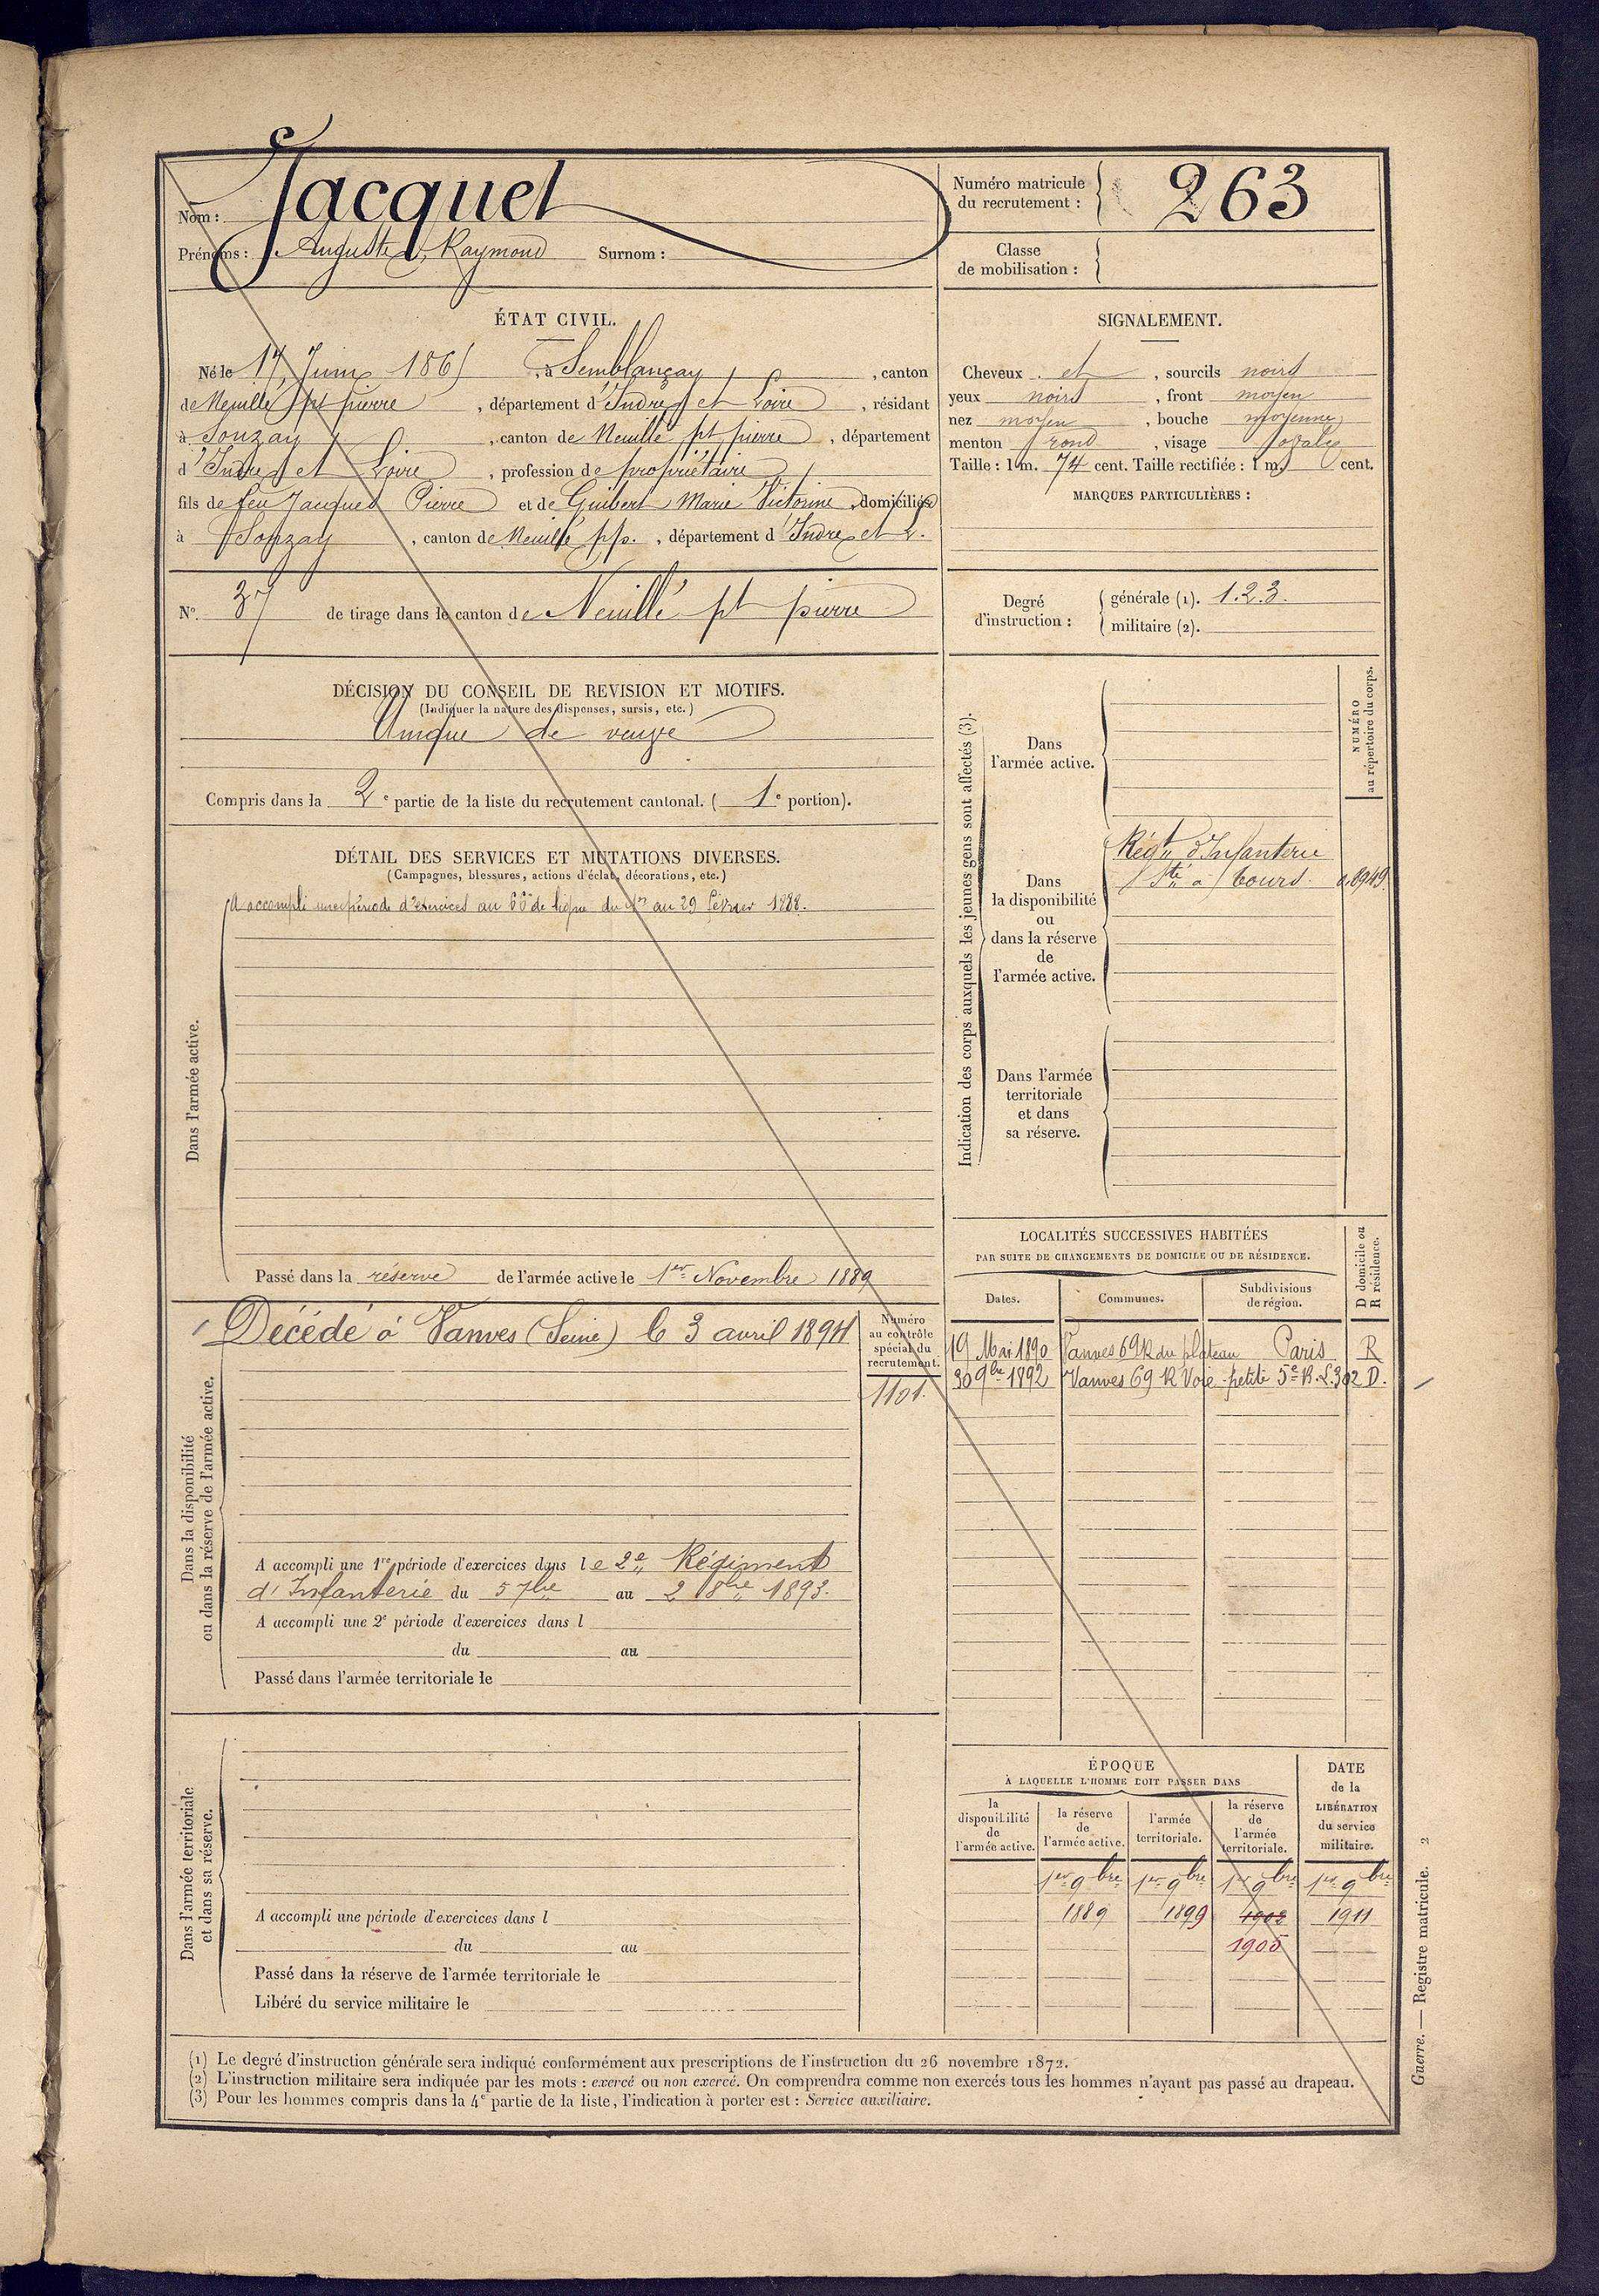 Nom : Jacquet
Prénoms : Auguste, Raymond Surnom :
Numéro matricule du recrutement : 263
Classe de mobilisation :
ÉTAT CIVIL.
Né le 17 Juin 1865, à Semblançay, canton
de Neuillé pt pierre, département d'Indre et Loire, résidant
à Sonzay, canton de Neuillé pt pierre, département
d'Indre et Loire, profession de propriétaire
fils de feu Jacquet Pierre et de Guibert Marie Victorine, domiciliés
à Sonzay, canton de Neuillé p.p., département d'Indre et L.
N° 37 de tirage dans le canton de Neuillé pt pierre
SIGNALEMENT.
Cheveux et, sourcils noirs
yeux noirs, front moyen
nez moyen, bouche moyenne
menton rond, visage ovale
Taille : 1 m. 74 cent. Taille rectifiée : 1 m. cent.
MARQUES PARTICULIÈRES :
Degré d'instruction :
générale (1). 1.2.3.
militaire (2).
DÉCISION DU CONSEIL DE REVISION ET MOTIFS.
(Indiquer la nature des dispenses, sursis, etc.)
Unique de veuve
Compris dans la 2e partie de la liste du recrutement cantonal. (1e portion).
DÉTAIL DES SERVICES ET MUTATIONS DIVERSES.
(Campagnes, blessures, actions d'éclat, décorations, etc.)
Dans l'armée active.
A accompli une période d'exercices au 66e de ligne du 1er au 29 Février 1888.
Passé dans la réserve de l'armée active le 1er Novembre 1889
Dans la disponibilité
ou dans la réserve de l'armée active.
Décédé à Vanves (Seine) le 3 avril 1894
Numéro
au contrôle
spécial du
recrutement.
1101.
A accompli une 1re période d'exercices dans le 2e Régiment
d'Infanterie du 5 7bre au 2 8bre 1893.
A accompli une 2e période d'exercices dans l
du au
Passé dans l'armée territoriale le
Dans l'armée territoriale
et dans sa réserve.
A accompli une période d'exercices dans l
du au
Passé dans la réserve de l'armée territoriale le
Libéré du service militaire le
Indication des corps auxquels les jeunes gens sont affectés (3).
NUMÉRO
au répertoire du corps.
Dans
l'armée active.
Dans
la disponibilité
ou
dans la réserve
de
l'armée active.
Régt d'Infanterie
Sté à Tours.
Dans l'armée
territoriale
et dans
sa réserve.
LOCALITÉS SUCCESSIVES HABITÉES
PAR SUITE DE CHANGEMENTS DE DOMICILE OU DE RÉSIDENCE.
Dates.
Communes.
Subdivisions
de région.
D domicile ou
R résidence.
19 Mai 1890 Vanves 69 R du plateau Paris R
30 9bre 1892 Vanves 69 R Voie petite 5e B. L.302 D.
ÉPOQUE
À LAQUELLE L'HOMME DOIT PASSER DANS
la
disponibilité
de
l'armée active.
la réserve
de
l'armée active.
l'armée
territoriale.
la réserve
de
l'armée
territoriale.
DATE
de la
LIBÉRATION
du service
militaire.
1er 9bre 1er 9bre 1er 9bre 1er 9bre
1889 1899 1908 1911
1905
(1) Le degré d'instruction générale sera indiqué conformément aux prescriptions de l'instruction du 26 novembre 1872.
(2) L'instruction militaire sera indiquée par les mots : exercé ou non exercé. On comprendra comme non exercés tous les hommes n'ayant pas passé au drapeau.
(3) Pour les hommes compris dans la 4e partie de la liste, l'indication à porter est : Service auxiliaire.
Guerre. — Registre matricule. 2